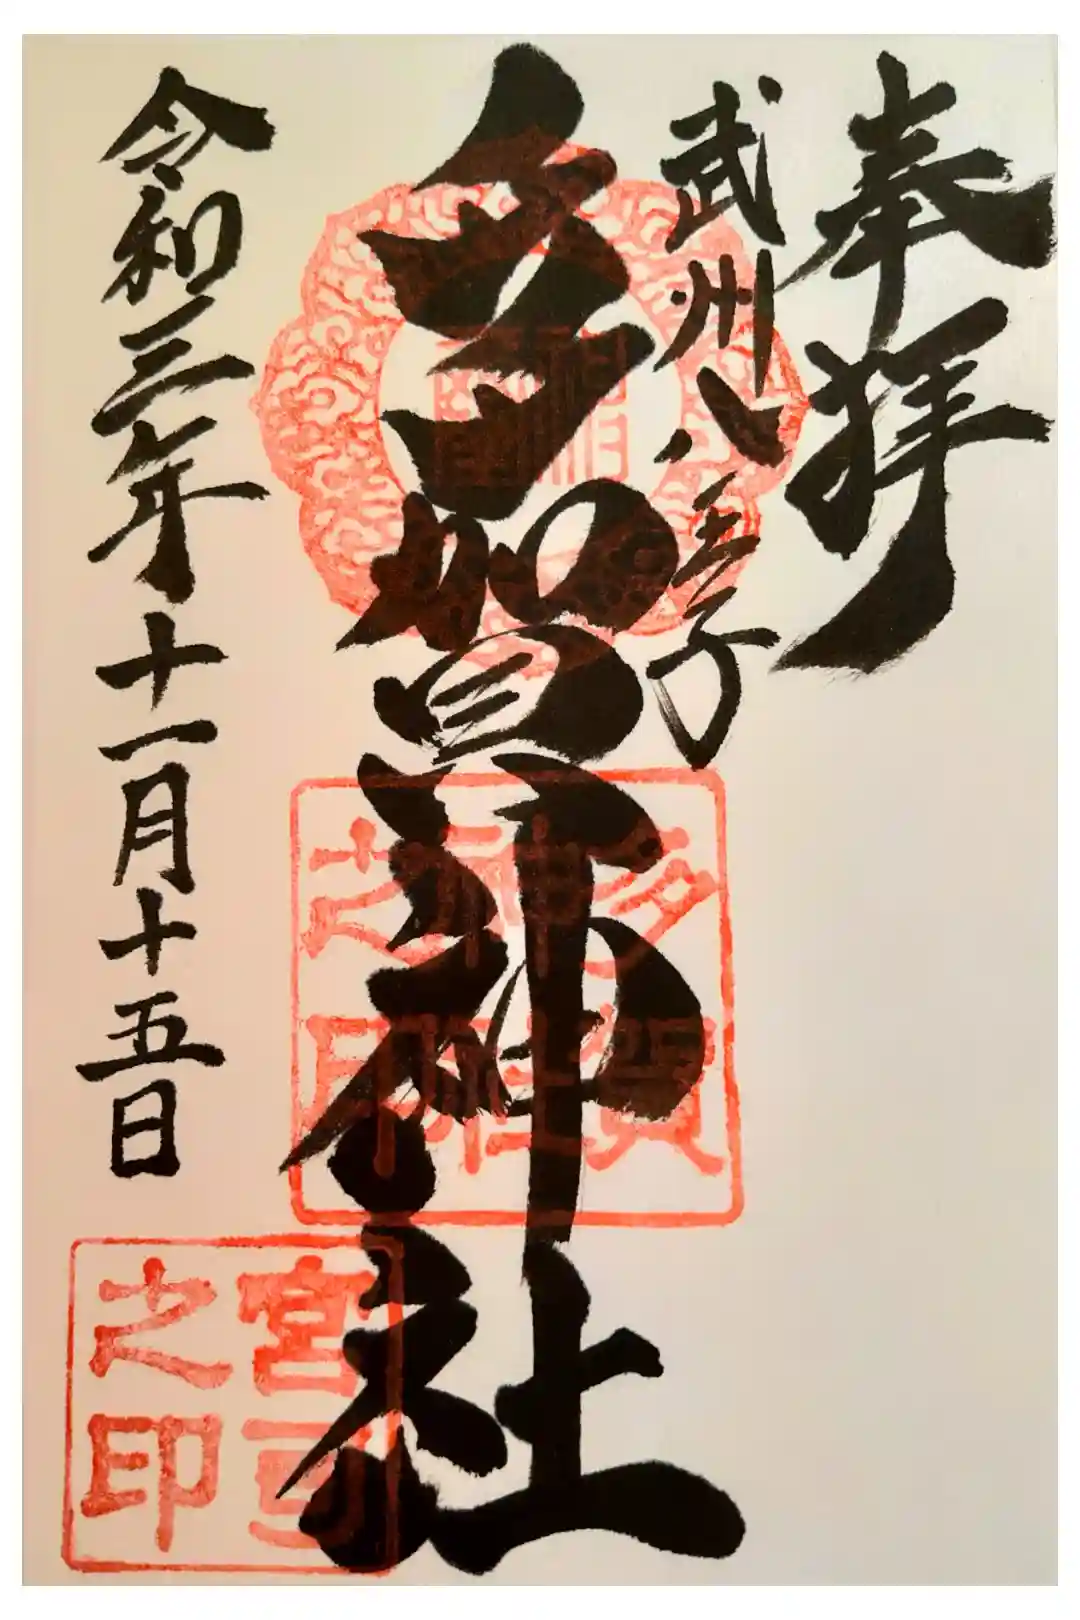 奉拝
武州八王子
多賀神社
多賀
神社
之印
令和三年十一月十五日
宮司
之印